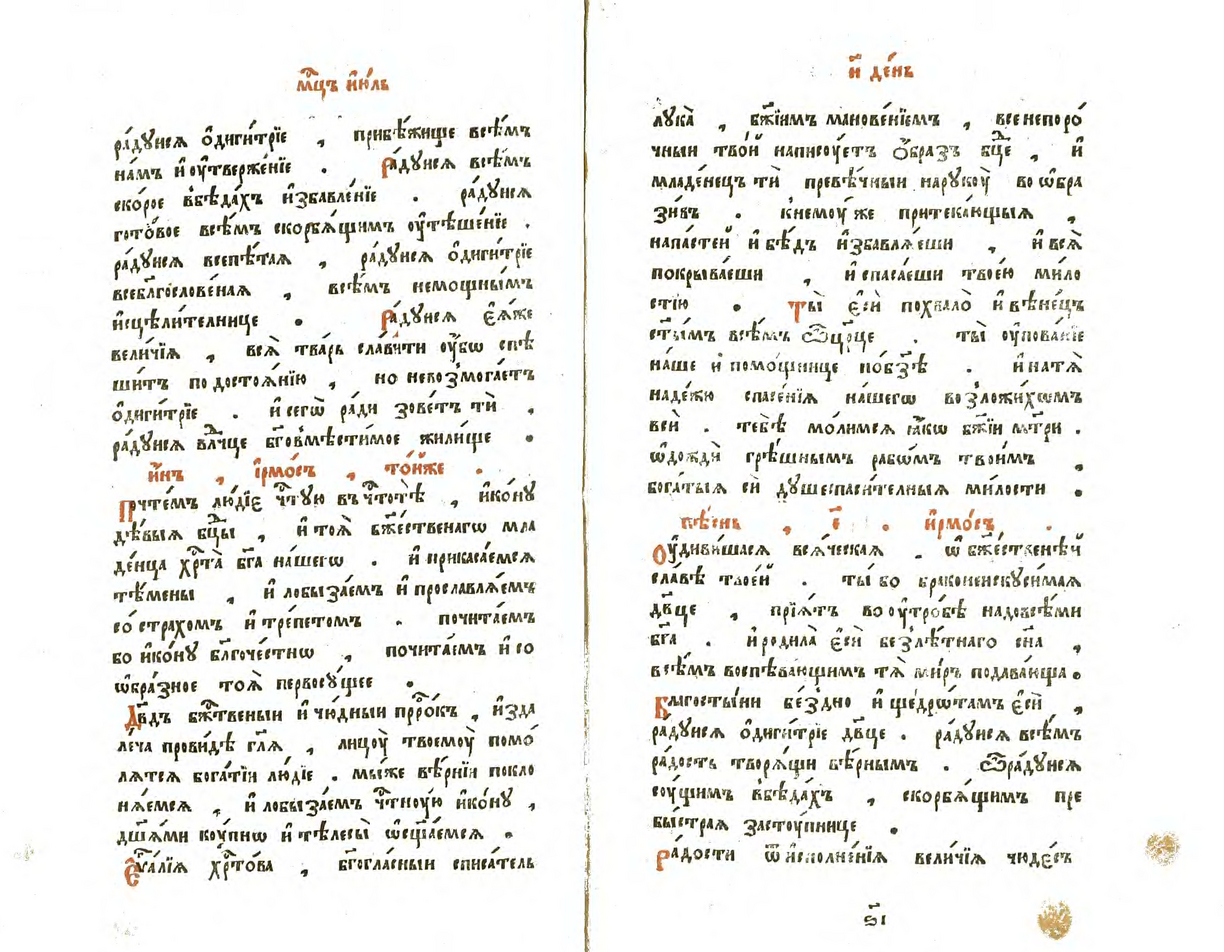 мⷭ҇цъ ию́ль
ра́дꙋисѧ ѻ҆диги́трїе , прибѣ́жище всѣ́мъ
на́мъ и҆ оу҆твержє́нїе . Ра́дꙋисѧ всѣ́мъ
ско́рое вбѣда́хъ и҆збавле́нїе . ра́дꙋисѧ
гото́вое всѣ́мъ скорбѧ́щимъ оу҆тѣше́нїе .
ра́дꙋисѧ всепѣ́таѧ , ра́дꙋисѧ ѻ҆диги́трїе
всебл҃гослове́наѧ , всѣ́мъ немощны́мъ
и҆сцѣли́телнице . Ра́дꙋисѧ є҆ѧ́же
вели́чїѧ , всѧ̀ тва́рь сла́вити оу҆́бѡ спѣ
ши́тъ по достоѧ́нїю , но невозмога́етъ
ѻ҆диги́трїе . и҆ сегѡ̀ ра́ди зове́тъ ти́ ,
ра́дꙋисѧ влⷣчце бг҃овмѣсти́мое жили́ще .
и҆́нъ , і҆рмо́съ , то́йже .
Почте́мъ лю́дїє чⷭ҇тꙋю въ чⷭ҇тотѣ̀ , и҆ко́нꙋ
дѣ́выѧ бцⷣы , и҆ тоѧ̀ бж҃е́ственагѡ мла
де́нца хрⷭ҇та̀ бг҃а на́шегѡ . и҆ прикаса́емсѧ
тѣ́мены , и҆ лобыза́емъ и҆ прославлѧ́емъ
со стра́хомъ и҆ тре́петомъ . почита́емъ
бо и҆ко́нꙋ бл҃гоче́стнѡ , почита́емъ и҆ со
ѡ҆бра́зное тоѧ̀ первосꙋ́щее .
Дв҃дъ бжⷭ҇твеныи и҆ чю́дныи прⷪ҇ро́къ , и҆зда
ле́ча прови́дѣ гл҃ѧ , лицоу̀ твоемоу̀ помо́
лѧтсѧ бога́тїи лю́дїе . мы́же вѣ́рнїи покло
нѧ́емсѧ , и҆ лобыза́емъ чⷭ҇тноую и҆ко́нꙋ ,
дш҃ѧ́ми коу́пнѡ и҆ тѣлесы̀ ѡ҆сщ҃а́емсѧ .
Є҆ѵⷢ҇а́лїѧ хрⷭ҇то́ва , бг҃огла́сныи списа́тель
и҃ де́нь
лꙋка̀ , бж҃іимъ манове́нїемъ , все непоро́
чныи твои́ написоу́етъ ѻ҆́бразъ бцⷣе , и҆
младе́нецъ ти́ превѣ́чныи на рꙋкоу̀ во ѡ҆бра
зи́въ . к немоу́ же притека́ющыѧ ,
напасте́й и҆ бѣ́дъ и҆збавлѧ́еши , и҆ всѧ̀
покрыва́еши , и҆ спаса́еши твое́ю ми́ло
стїю . Ты̀ є҆сѝ похвало̀ и҆ вѣне́цъ
ст҃ымъ всѣ́мъ ѻ҆трокови́це . ты̀ оу҆пова́нїе
на́ше и҆ помо́щнице по́ бз҃ѣ . и҆ на тѧ̀
наде́жю спасе́нїѧ на́шегѡ возложи́хѡмъ
вси́ . тебѣ̀ мо́лимсѧ ꙗ҆́кѡ бж҃їи мт҃ри .
ѡ҆дождѝ грѣ́шнымъ рабѡ́мъ твои́мъ ,
бога́тыѧ сѝ дꙋшеспаси́телныѧ ми́лости .
пѣ́снь , є҃ . и҆рмо́съ .
Оу҆диви́шасѧ всѧ́ческаѧ . ѡ҆ бж҃е́ственѣй
сла́вѣ твое́й . ты́ бо браконеискꙋси́маѧ
дв҃це , прїѧ́тъ во оу҆тро́бѣ надовсѣ́ми
бг҃а . и҆ родила̀ є҆сѝ безлѣ́тнаго сн҃а ,
всѣ́мъ воспѣва́ющимъ тѧ̀ ми́ръ подава́юща .
Бла́гостыни бе́здно и҆ щедрѡ́тамъ є҆сѝ ,
ра́дꙋисѧ ѻ҆диги́трїе дв҃це . ра́дꙋисѧ всѣ́мъ
ра́дость творѧ́щи вѣ́рнымъ . ѻ҆тра́дꙋисѧ
соу́щимъ вбѣда́хъ , скорбѧ́щимъ пре
бы́страѧ застоу́пнице .
Ра́дости ѿ и҆сполне́нїѧ вели́чїѧ чюде́съ
ѕ҃і